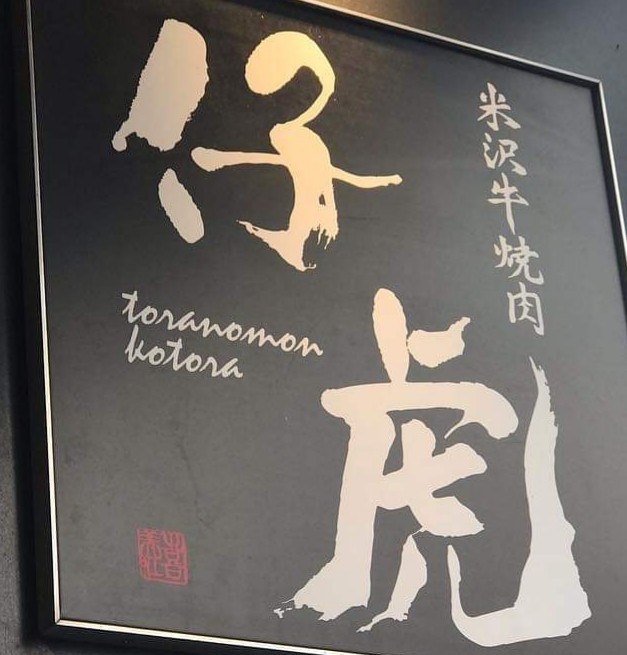 米沢牛焼肉
仔虎
toranomon
kotora